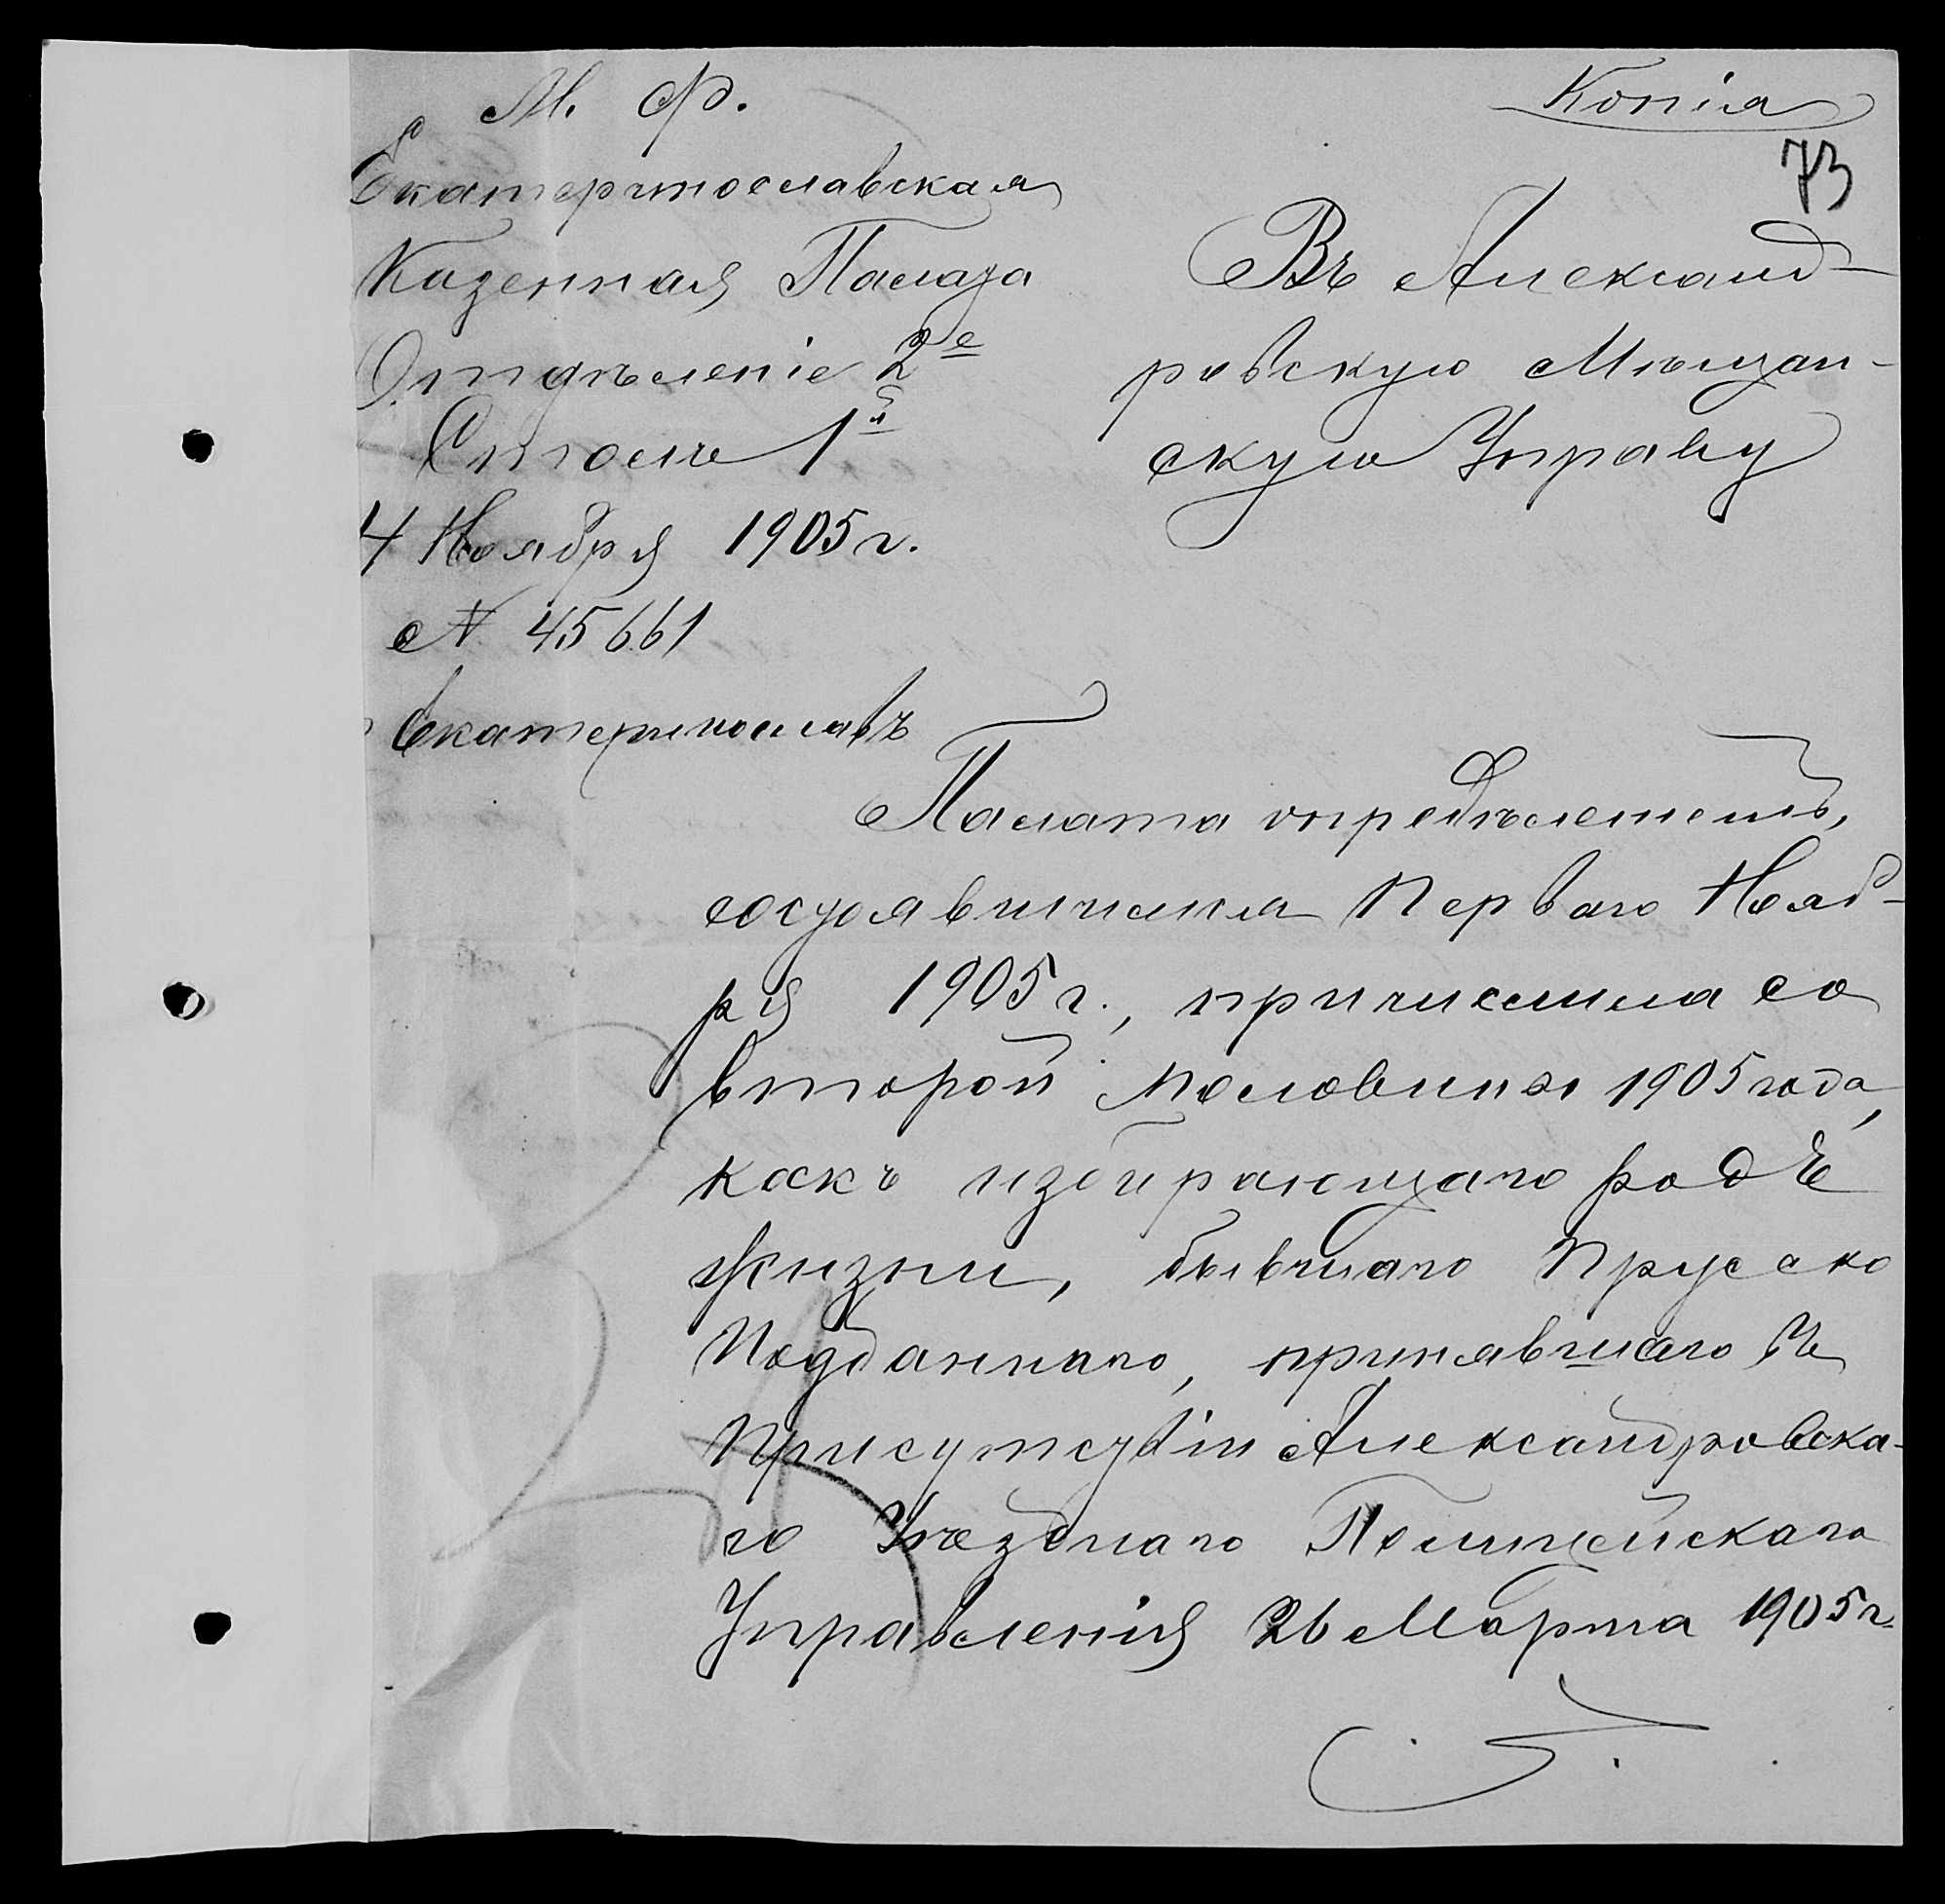 Копія
73
М. Ф.
Екатеринославская
Казенная Палата
Отдѣленіе 2е
Столъ 1й
4 Ноября 1905 г.
№ 45661
Екатеринославъ
Въ Александ-
ровскую Мѣщан-
скую Управу
Палата опредѣленіемъ,
состоявшимся Перваго Нояб-
ря 1905 г., причислила со
второй половины 1905 года,
какъ избирающаго родъ
жизни, бывшаго Прусско
Подданнаго, принявшаго въ
Присутствіи Александровска-
го Уѣзднаго Полицейскаго
Управленія 26 Марта 1905 г.